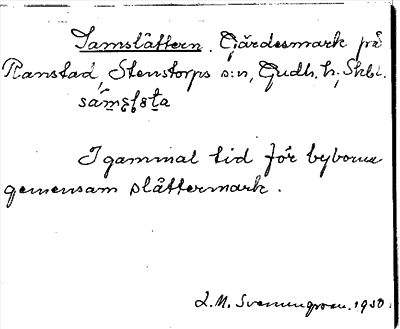 Samslåttern. Gärdesmark på
Ranstad, Stenstorps s:n, Gudh. h., Skbl.
I gammal tid för byborna
gemensam slåttermark.
L. M. Svenungsson. 1930.